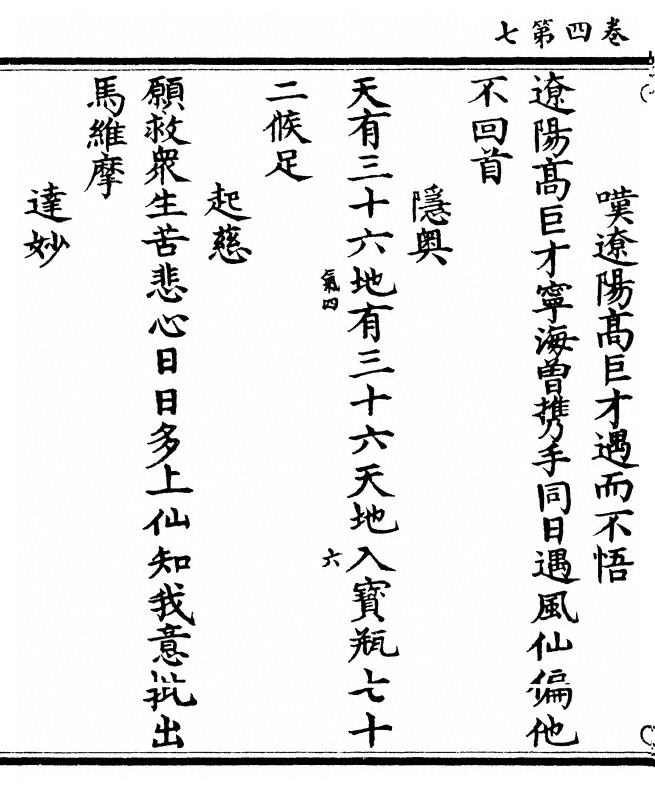 卷四第七
嘆遼陽高巨才遇而不悟
遼陽高巨才寧海曾携手同日遇風仙偏他
不回首
隱奥
天有三十六地有三十六天地入寶瓶七十
氣四
六
二候足
起慈
願救衆生苦悲心日日多上仙知我意批出
馬維摩
達妙